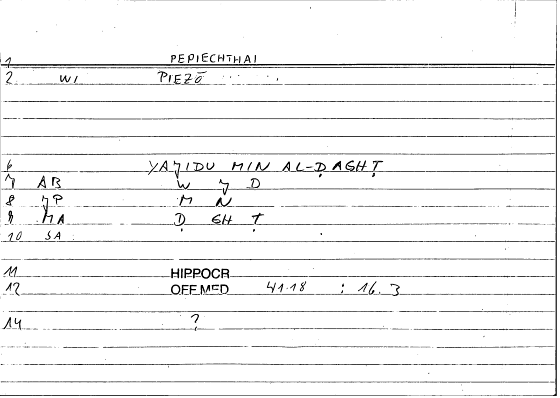 1 PEPIECHTHAI
2 WI PIEZŌ
6 YAZIDU MIN AL-ḌAGHṬ
7 AB W Z D
8 JP M N
9 MA Ḍ GH Ṭ
10 SA
11 HIPPOCR
12 OFF.MED 41.18 : 16.3
14 ?